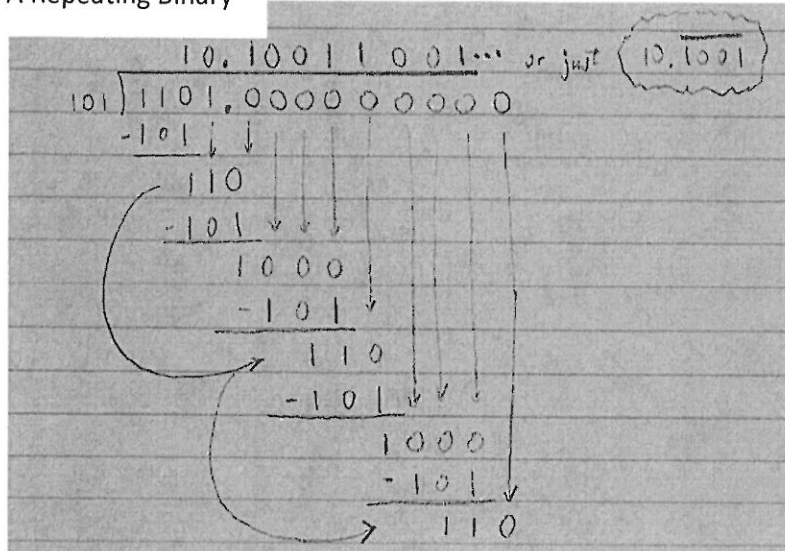 A Repeating Binary
10.10011001... or just 10.1001
101 1101.000000000
-101
110
-101
1000
-101
110
-101
1000
-101
110